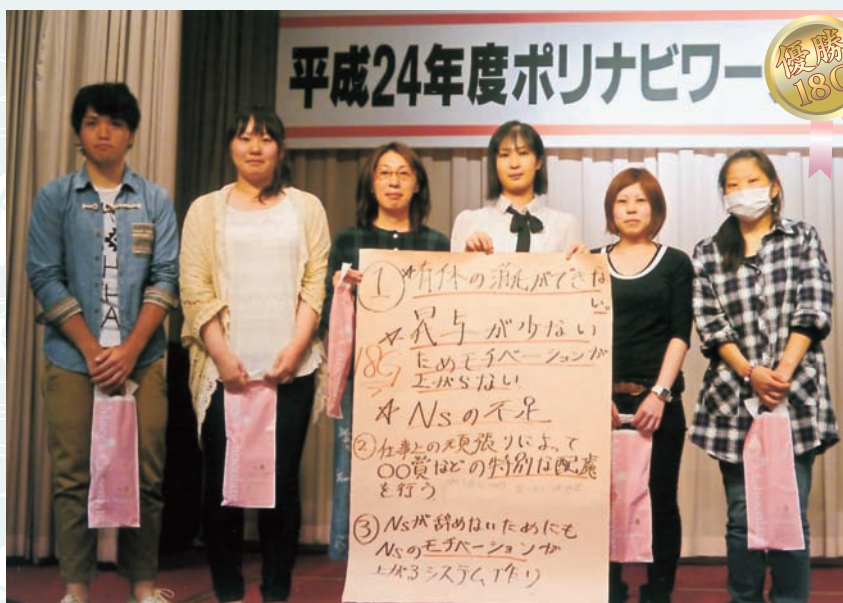 平成24年度ポリナビワー
優勝
18G
① ☆有休の消化ができな
い。
☆昇与が少ない
18G
ためモチベーションが
上がらない
☆Nsの不足
② 仕事上の頑張りによって
〇〇賞などの特別な配慮
を行う
③ Nsが辞めないためにも
Nsのモチベーションが
上がるシステム作り